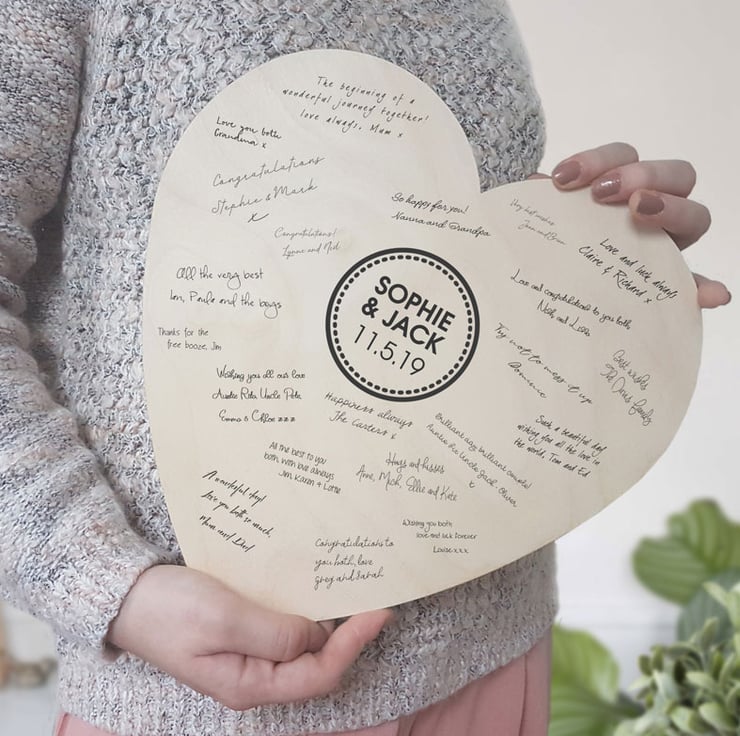 The beginning of a
wonderful journey together!
love always, Mum x
Love you both
Grandma x
Congratulations
Stephie & Mark
x
So happy for you!
Nanna and Grandpa
Congratulations!
Lynne and Neil
best wishes
Love and luck always
Claire & Richard x
All the very best
Ian, Paula and the boys
Love and congratulations to you both
Nosh and
SOPHIE
& JACK
11.5.19
Thanks for the
free booze, Jim
Try not to mess it up
Best wishes
The Davis family
Wishing you all our love
Auntie Rita Uncle Pete
Emma & Chloe zzz
Happiness always
The Carters x
Brilliant day, brilliant couple!
Auntie Bea Uncle Jack Oliver
x
Such a beautiful day
wishing you all the love in
the world, Tom and Ed
All the best to you
both with love always
Jim Karen & Lottie
Hugs and kisses
Anne, Mick, Ellie and Kate
A wonderful day!
love you both so much,
Mum and Dad
Wishing you both
love and luck forever
Louise xxx
Congratulations to
you both, love
greg and Sarah